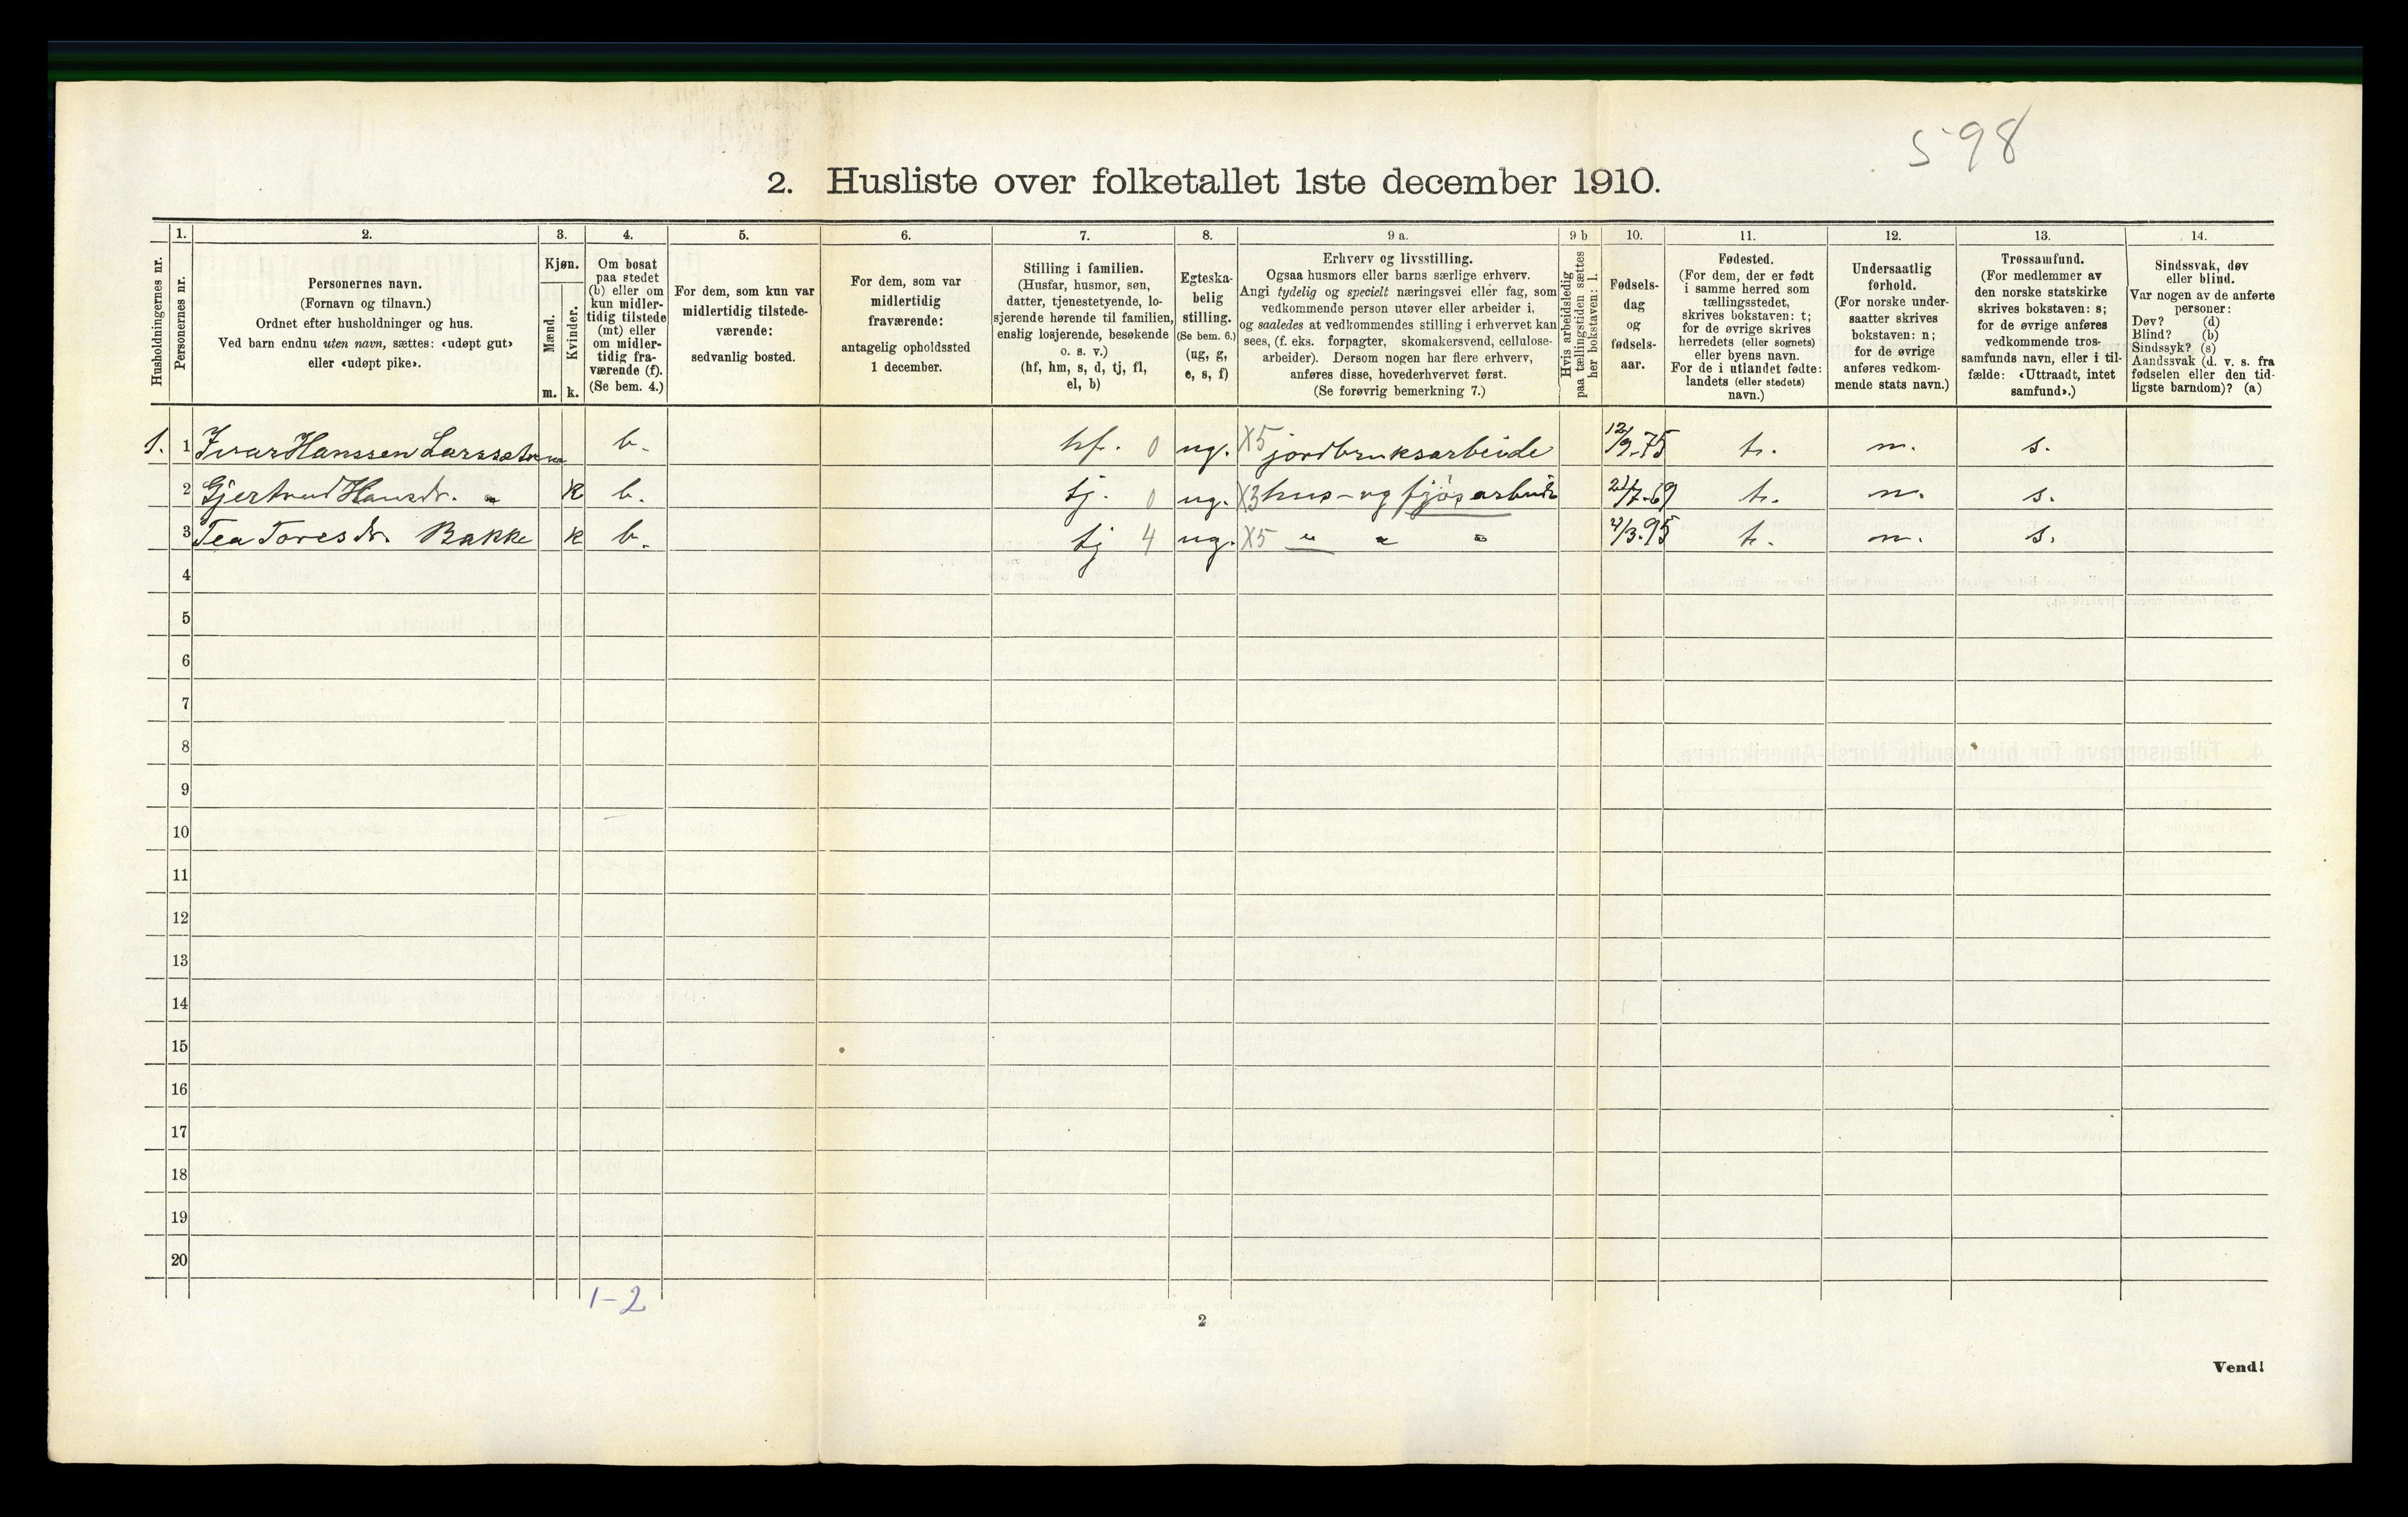 598
2. Husliste over folketallet 1ste december 1910.
Husholdningernes nr.
1.
Personernes nr.
2.
Personernes navn.
(Fornavn og tilnavn.)
Ordnet efter husholdninger og hus.
Ved barn endnu uten navn, sættes: «udøpt gut»
eller «udøpt pike».
3.
Kjøn.
Mænd.
Kvinder.
m. k.
4.
Om bosat
paa stedet
(b) eller om
kun midler-
tidig tilstede
(mt) eller
om midler-
tidig fra-
værende (f).
(Se bem. 4.)
5.
For dem, som kun var
midlertidig tilstede-
værende:
sedvanlig bosted.
6.
For dem, som var
midlertidig
fraværende:
antagelig opholdssted
1 december.
7.
Stilling i familien.
(Husfar, husmor, søn,
datter, tjenestetyende, lo-
sjerende hørende til familien,
enslig losjerende, besøkende
o. s. v.)
(hf, hm, s, d, tj, fl,
el, b)
8.
Egteska-
belig
stilling.
(Se bem. 6.)
(ug, g,
e, s, f)
9 a.
Erhverv og livsstilling.
Ogsaa husmors eller barns særlige erhverv.
Angi tydelig og specielt næringsvei eller fag, som
vedkommende person utøver eller arbeider i,
og saaledes at vedkommendes stilling i erhvervet kan
sees, (f. eks. forpagter, skomakersvend, cellulose-
arbeider). Dersom nogen har flere erhverv,
anføres disse, hovederhvervet først.
(Se forøvrig bemerkning 7.)
9 b
Hvis arbeidsledig
paa tællingstiden sættes
her bokstaven: l.
10.
Fødsels-
dag
og
fødsels-
aar.
11.
Fødested.
(For dem, der er født
i samme herred som
tællingsstedet,
skrives bokstaven: t;
for de øvrige skrives
herredets (eller sognets)
eller byens navn.
For de i utlandet fødte:
landets (eller stedets)
navn.)
12.
Undersaatlig
forhold.
(For norske under-
saatter skrives
bokstaven: n;
for de øvrige
anføres vedkom-
mende stats navn.)
13.
Trossamfund.
(For medlemmer av
den norske statskirke
skrives bokstaven: s;
for de øvrige anføres
vedkommende tros-
samfunds navn, eller i til-
fælde: «Uttraadt, intet
samfund».)
14.
Sindssvak, døv
eller blind.
Var nogen av de anførte
personer:
Døv? (d)
Blind? (b)
Sindssyk? (s)
Aandssvak (d. v. s. fra
fødselen eller den tid-
ligste barndom)? (a)
1. 1 Ivar Hanssen b. hf. 0 ug. X5 jordbruksarbeide 12/9-75 t. n. s.
2 Gjertrud Hansdr. " k b. tj. 0 ug. X3 hus- og fjøsarbeide 21/7-69 t. n. s.
3 Tea Toresdr. Bakke k b. tj 4 ug. X5 " " " /3.95 t. n. s.
4
5
6
7
8
9
10
11
12
13
14
15
16
17
18
19
20
1-2
2
Vend!